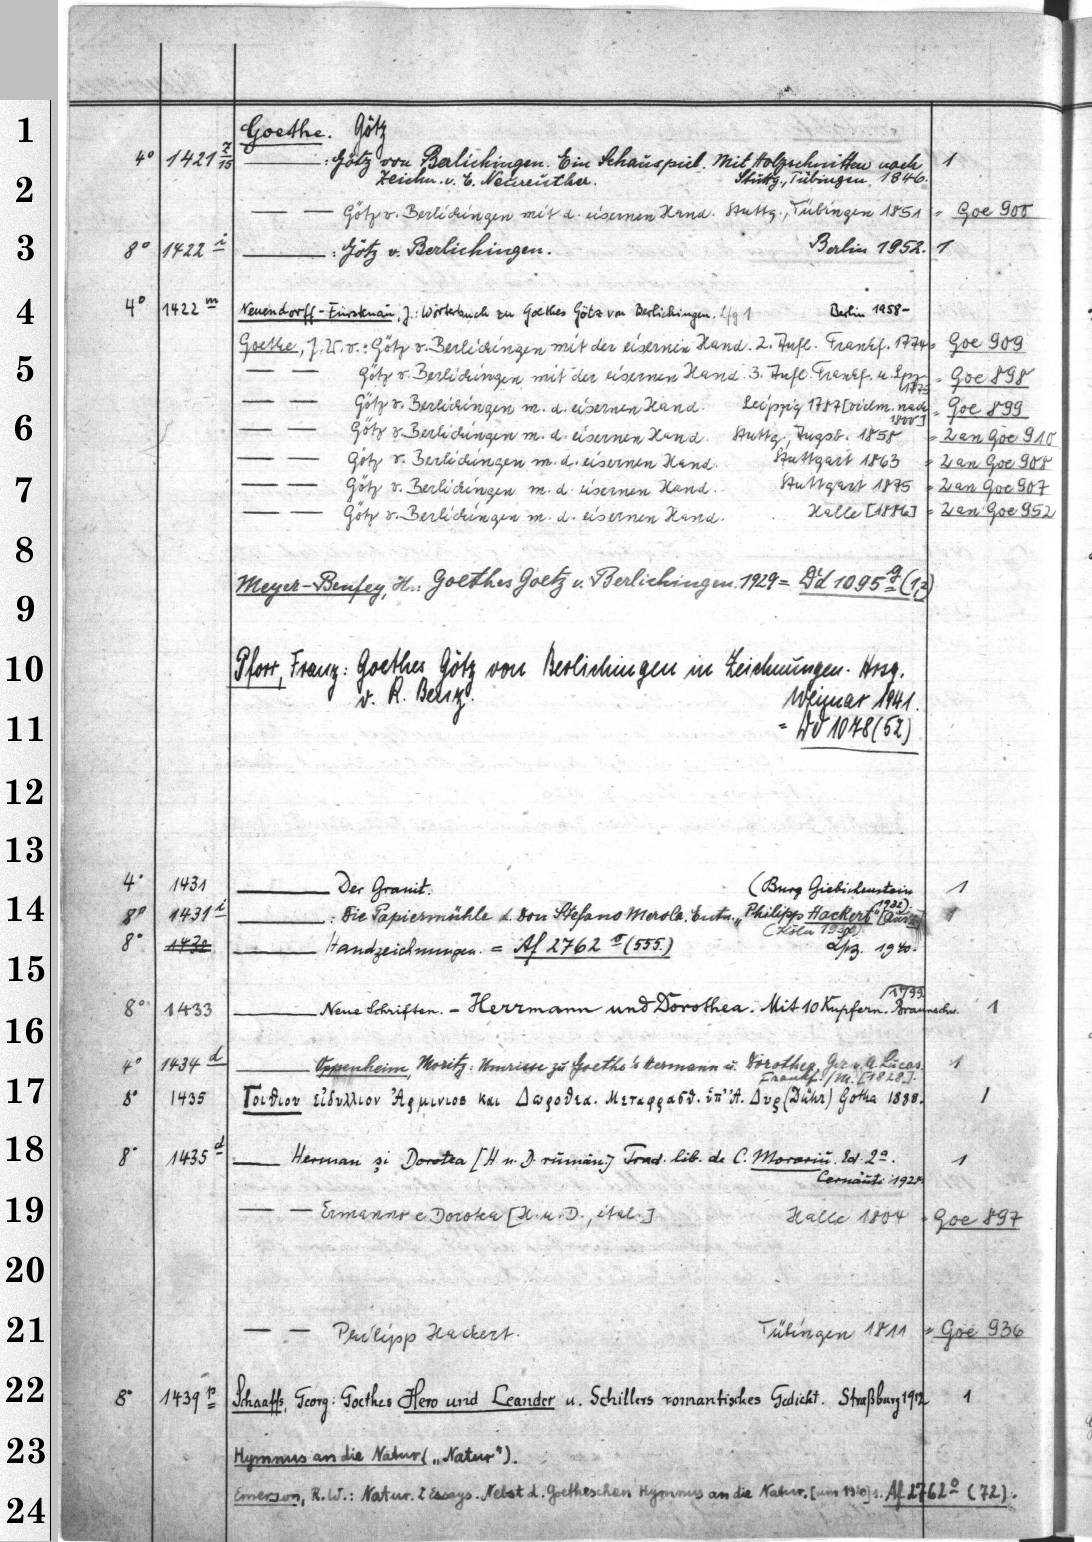 1
Goethe. Götz
4° 1421 z/15 : Götz von Berlichingen. Ein Schauspiel. Mit Holzschnitten nach 1
Zeichn. v. E. Neureuther. Stuttg., Tübingen 1846.
2
— — Götz v. Berlichingen mit d. eisernen Hand. Stuttg., Tübingen 1851 = Goe 900
3
8° 1422 i : Götz v. Berlichingen. Berlin 1952. 1
4
4° 1422 m Neuendorff-Fürstenau, J.: Wörterbuch zu Goethes Götz von Berlichingen. Lfg 1 Berlin 1958-
Goethe, J. W. v.: Götz v. Berlichingen mit der eisernen Hand. 2. Aufl. Frankf. 1774 = Goe 909
5
— — Götz v. Berlichingen mit der eisernen Hand. 3. Aufl. Frankf. u. Lpz. = Goe 898
— — Götz v. Berlichingen m. d. eisernen Hand. Leipzig 1787 [vielm. nach 1800] = Goe 899
6
— — Götz v. Berlichingen m. d. eisernen Hand. Stuttg., Augsb. 1858 = 2 an Goe 910
— — Götz v. Berlichingen m. d. eisernen Hand. Stuttgart 1863 = 2 an Goe 908
7
— — Götz v. Berlichingen m. d. eisernen Hand. Stuttgart 1875 = 2 an Goe 907
— — Götz v. Berlichingen m. d. eisernen Hand. Halle [1886] = 2 an Goe 952
8
Meyer-Benfey, H.: Goethes Goetz v. Berlichingen. 1929 = Dd 1095 g (1,2)
9
10
Pforr, Franz: Goethes Götz von Berlichingen in Zeichnungen. Hrsg.
v. R. Benz. Weimar 1941.
11
= Dd 1078 (52)
12
13
4° 1431 Der Granit. (Burg Giebichenstein 1
1932).
14
8° 1431 i : Die Papiermühle d. Don Stefano Merola. Entn. "Philipp Hackert" 1
8° 1432 Handzeichnungen. = Af 2762 o (555.) Lpz. 1940.
15
1799
8° 1433 Neue Schriften. - Herrmann und Dorothea. Mit 10 Kupfern. Braunschw. 1
16
4° 1434 d Oppenheim, Moritz: Umrisse zu Goethe's Hermann u. Dorothea. Gez. v. A. Lucas 1
Frankf./M. [1828].
17
8° 1435 Γοιθιου εἰδυλλιον Ἀρμινιος και Δωροθεα. Μεταφρασθ. ὑπ' Α. Δυρ (Dühr) Gotha 1888. 1
18
8° 1435 d Herman și Dorotea [H. u. D. rumän.] Trad. lib. de C. Morariu. Ed. 2a. 1
Cernăuți 1928
19
— — Ermanno e Dorotea [H. u. D., ital.] Halle 1804 = Goe 897
20
21
— — Philipp Hackert. Tübingen 1811 = Goe 936
22
8° 1439 p Schaaffs, Georg: Goethes Hero und Leander u. Schillers romantisches Gedicht. Straßburg 1912 1
23
Hymnus an die Natur („Natur").
24
Emerson, R. W.: Natur. 2 Essays. Nebst d. Goetheschen Hymnus an die Natur. [um 1910] s. Af 2762 o (72).